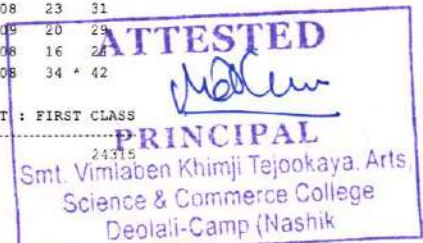 08 23 31
09 20 29
08 16 24
08 34 * 42
ATTESTED
T : FIRST CLASS
PRINCIPAL
24315
Smt. Vimlaben Khimji Tejookaya, Arts,
Science & Commerce College
Deolali-Camp (Nashik